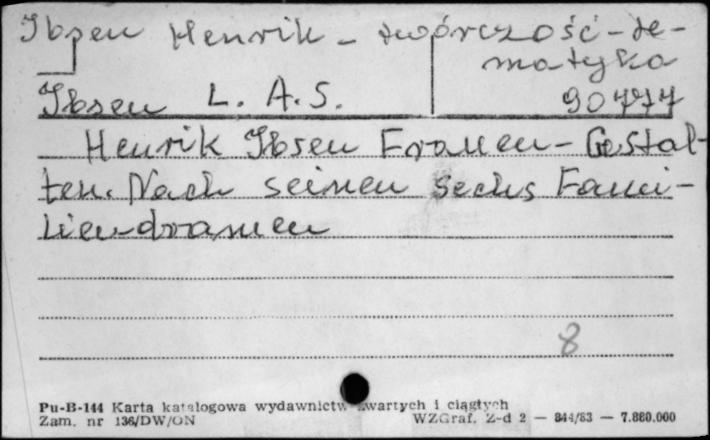 Ibsen Henrik - twórczość - te-
matyka
Ibsen L. A. S. 90777
Henrik Ibsen Frauen - Gestal-
ten. Nach seinen sechs Fami-
liendramen
8
Pu-B-144 Karta katalogowa wydawnictw zwartych i ciągłych
Zam. nr 136/DW/ON WZGraf. Z-d 2 — 844/83 — 7.880.000